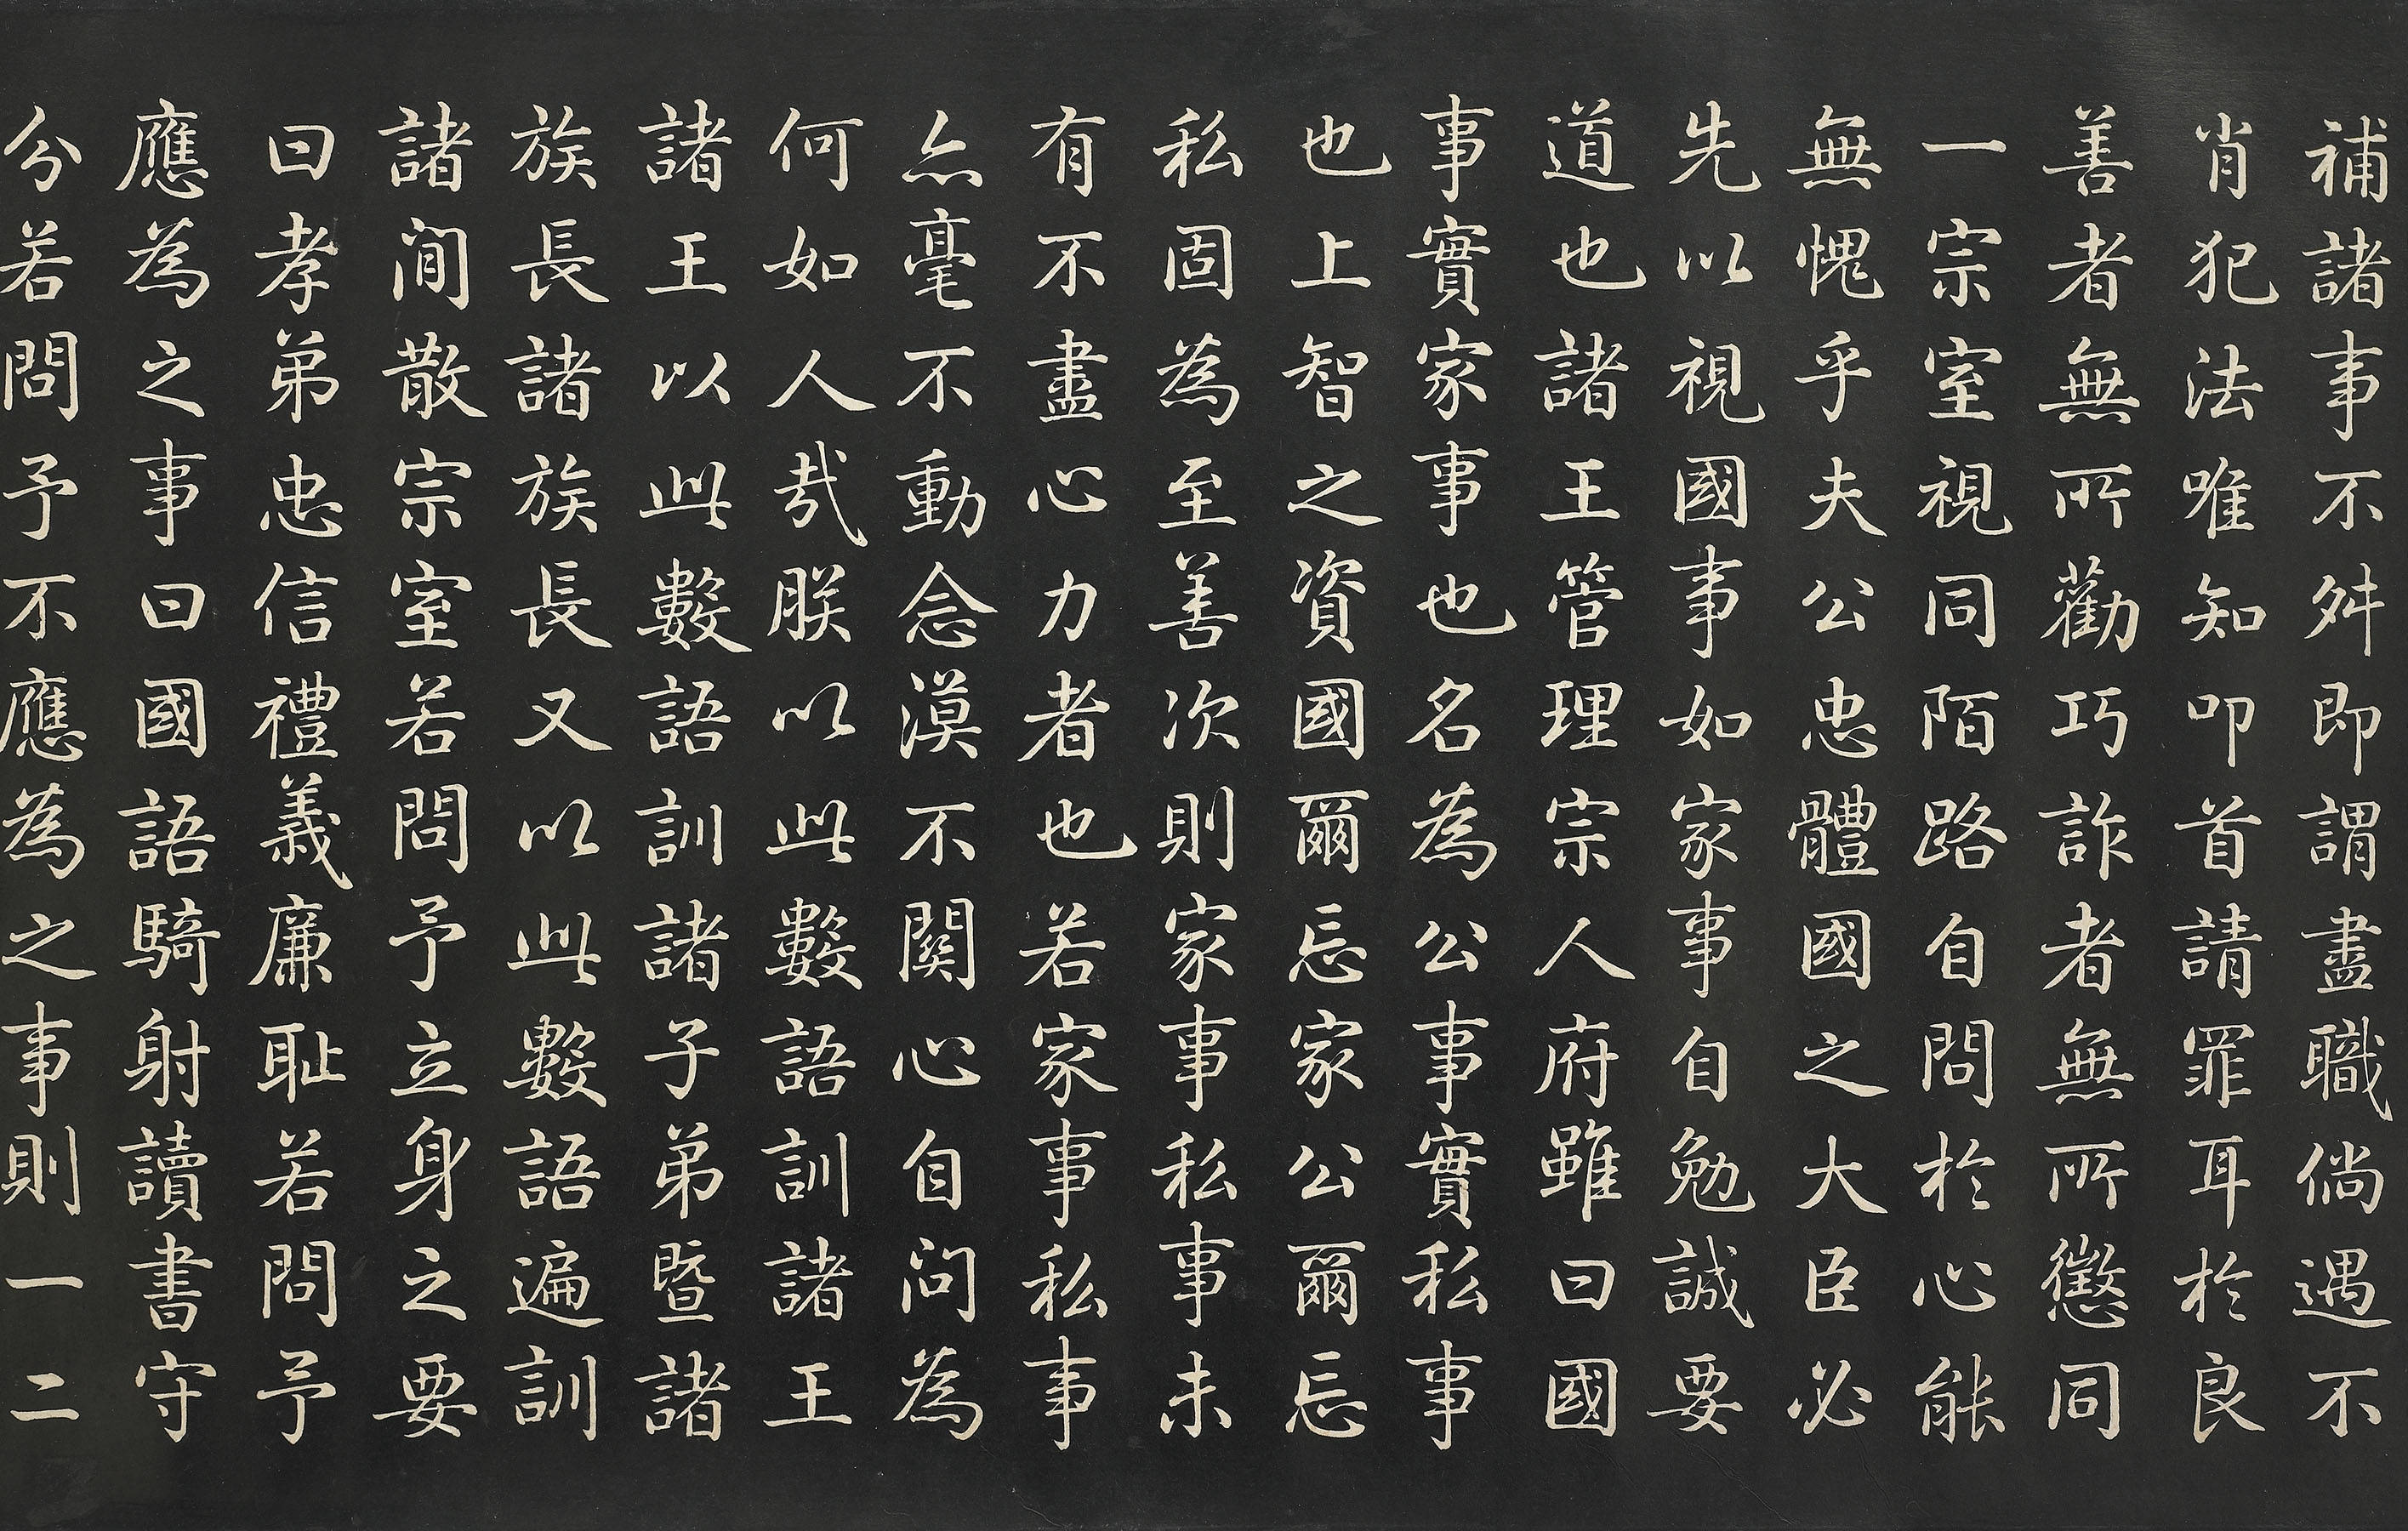 補諸事不舛即謂盡職倘遇不
肖犯法唯知叩首請罪耳於良
善者無所勸巧詐者無所懲同
一宗室視同陌路自問於心能
無愧乎夫公忠體國之大臣必
先以視國事如家事自勉誠要
道也諸王管理宗人府雖曰國
事實家事也名為公事實私事
也上智之資國爾忘家公爾忘
私固為至善次則家事私事未
有不盡心力者也若家事私事
亦毫不動念漠不關心自问為
何如人哉朕以此數語訓諸王
諸王以此數語訓諸子弟暨諸
族長諸族長又以此數語遍訓
諸閒散宗室若問予立身之要
曰孝弟忠信禮義廉耻若問予
應為之事曰國語騎射讀書守
分若問予不應為之事則一二